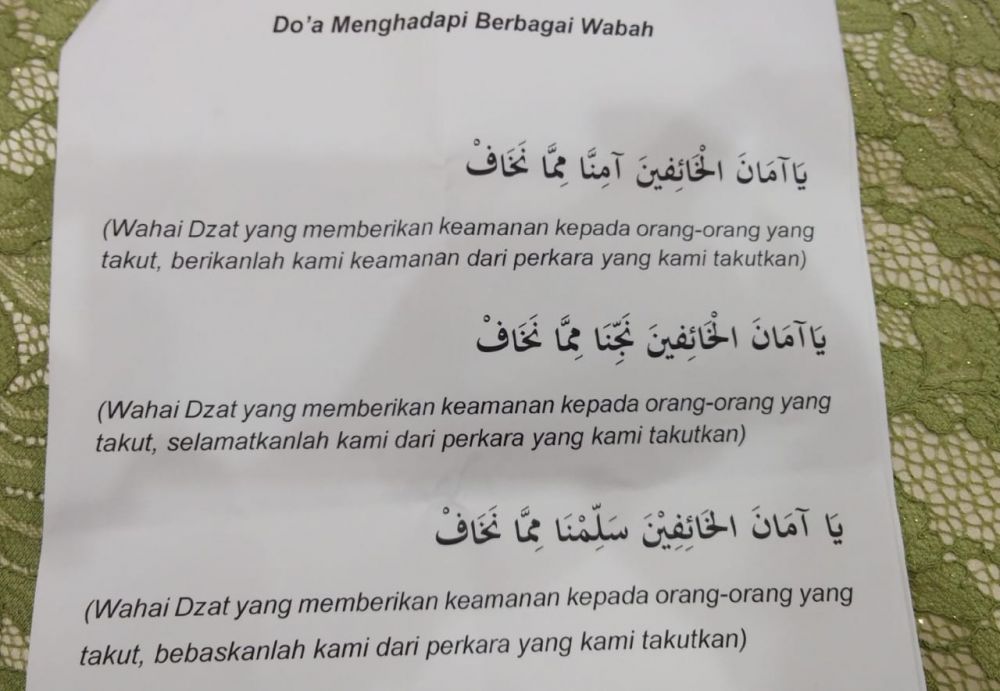 Do'a Menghadapi Berbagai Wabah
يَاآمَانَ الْخَائِفِينَ آمِنَّا مِمَّا نَخَافْ
(Wahai Dzat yang memberikan keamanan kepada orang-orang yang
takut, berikanlah kami keamanan dari perkara yang kami takutkan)
يَاآمَانَ الْخَائِفِينَ نَجِّنَا مِمَّا نَخَافْ
(Wahai Dzat yang memberikan keamanan kepada orang-orang yang
takut, selamatkanlah kami dari perkara yang kami takutkan)
يَا آمَانَ الخَائِفِيْنَ سَلِّمْنَا مِمَّا نَخَافْ
(Wahai Dzat yang memberikan keamanan kepada orang-orang yang
takut, bebaskanlah kami dari perkara yang kami takutkan)